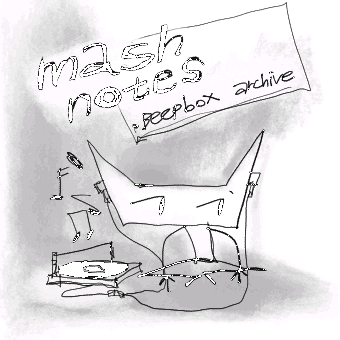 mash
notes
.Beepbox archive